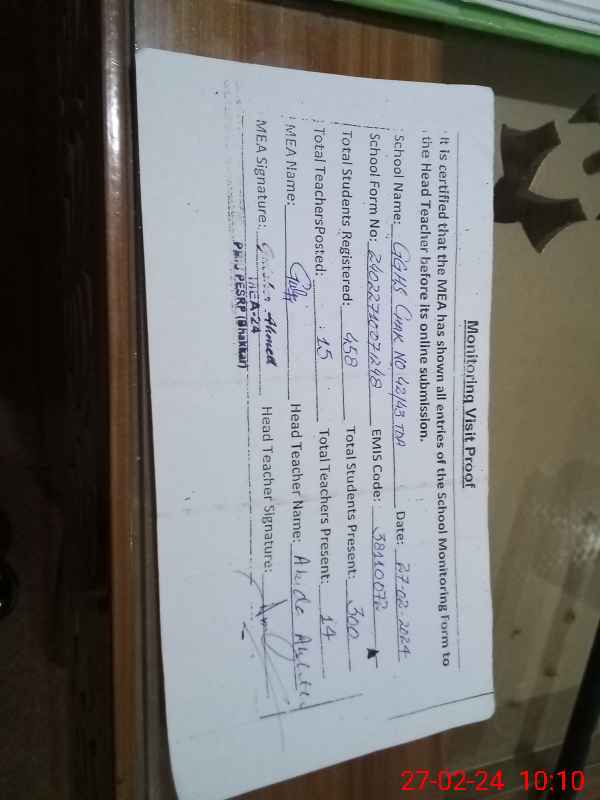 Monitoring Visit Proof
It is certified that the MEA has shown all entries of the School Monitoring Form to
the Head Teacher before its online submission.
School Name: GGHS Chak NO 42/43 TDA Date: 27-02-2024
School Form No: 2402271007248 EMIS Code: 38110072
Total Students Registered: 458 Total Students Present: 300
Total TeachersPosted: 15 Total Teachers Present: 14
MEA Name: Head Teacher Name: Abida
MEA Signature: Ahmed Head Teacher Signature:
MEA-24
PESRP (Bhakkar)
27-02-24 10:10